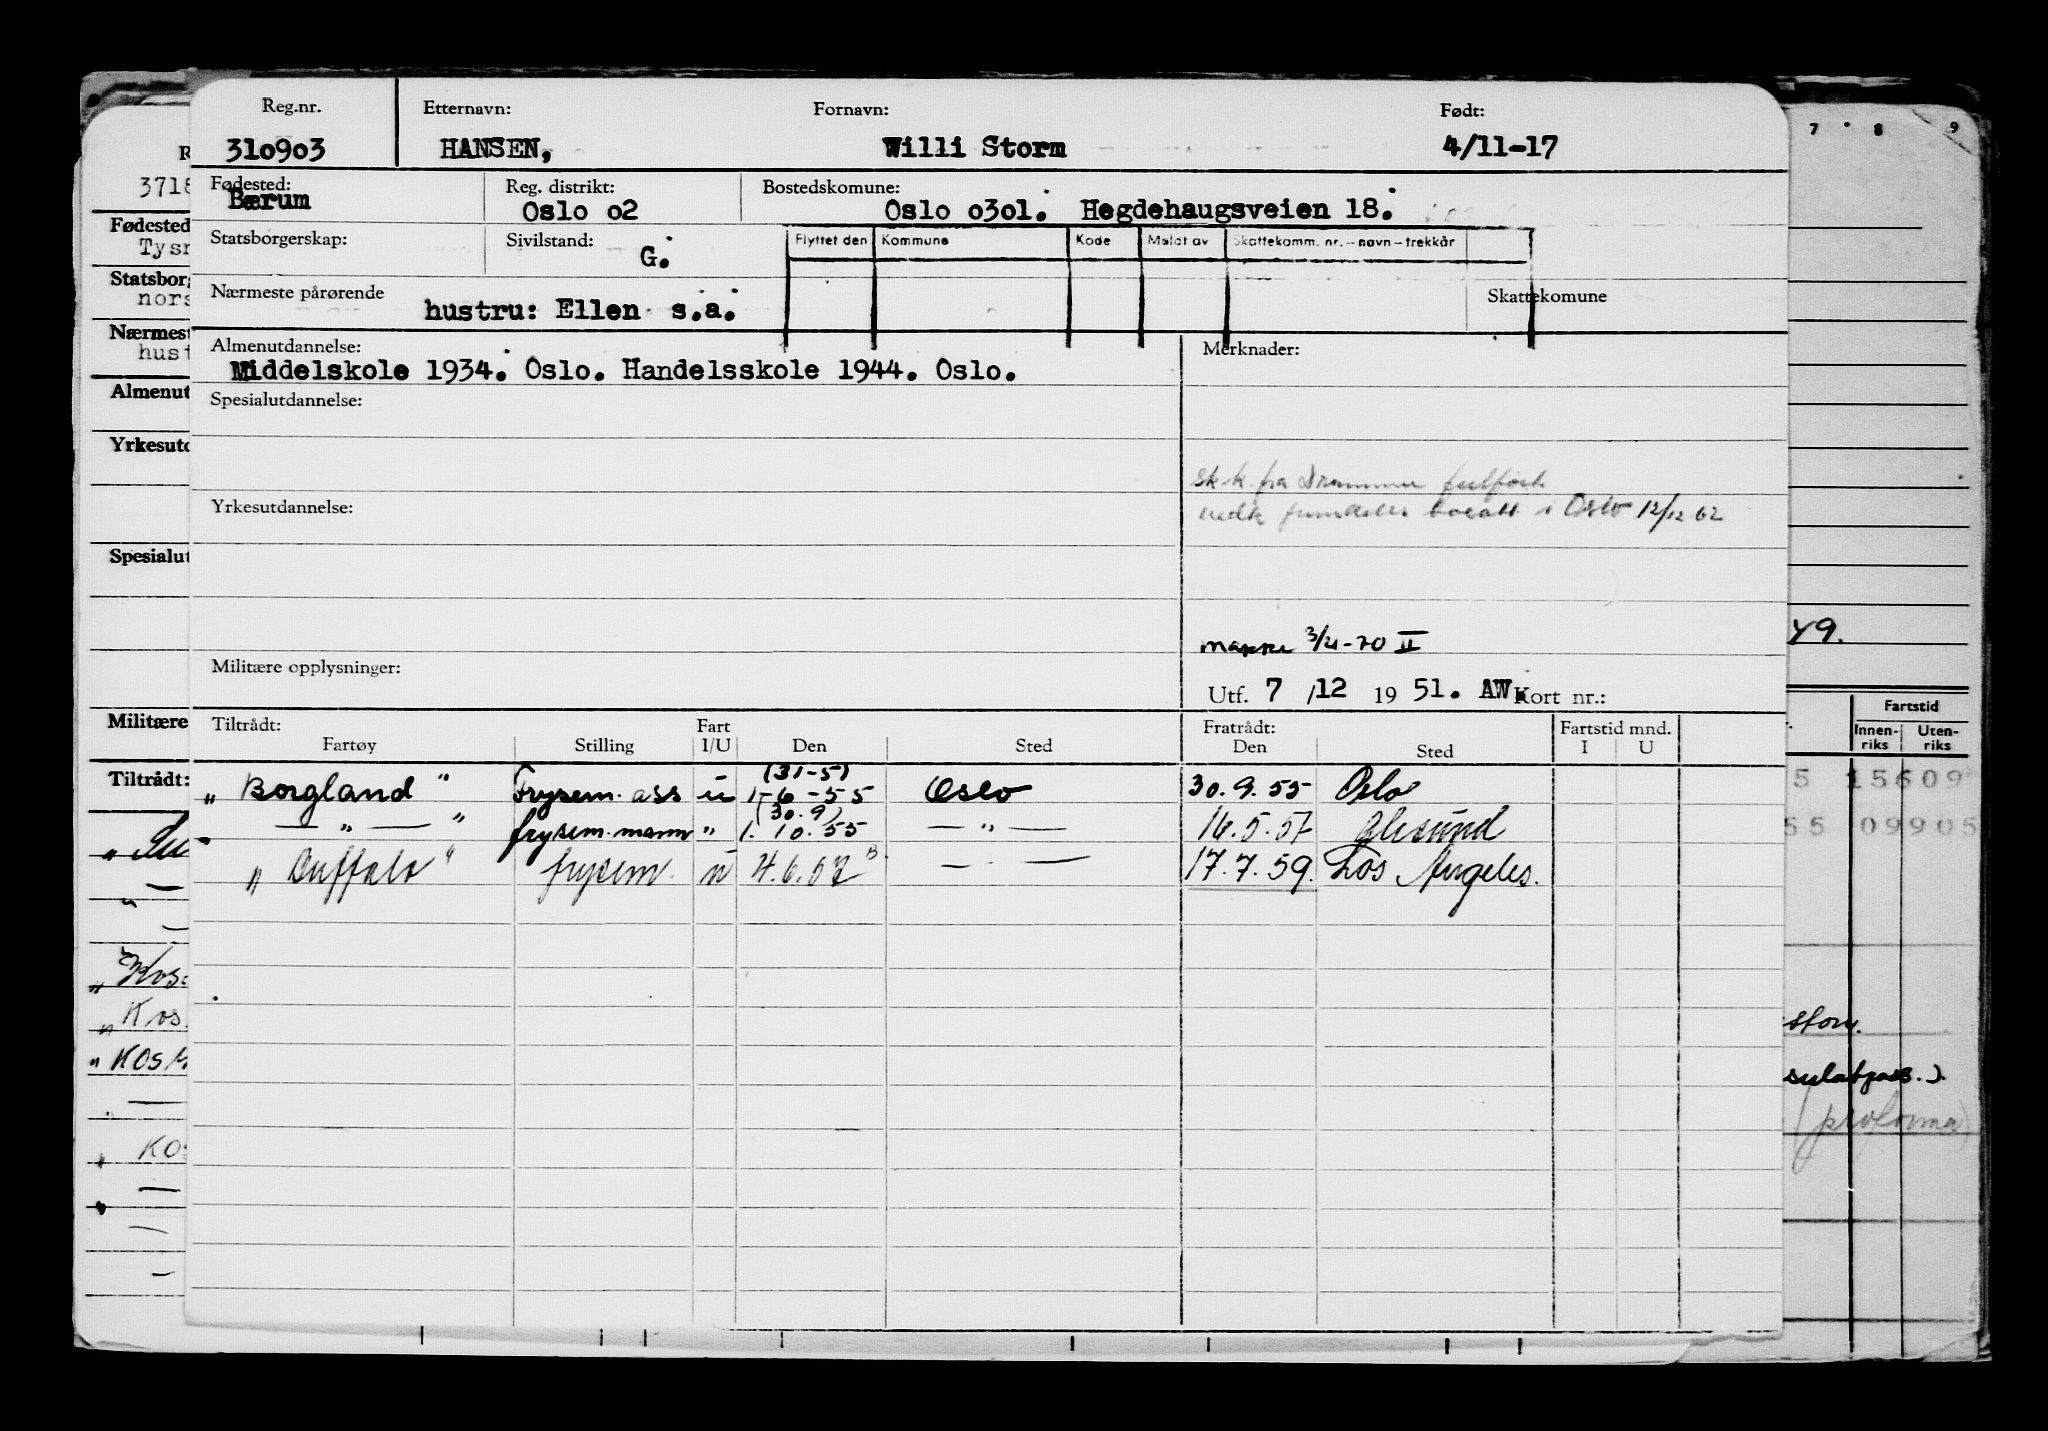 Reg.nr. Etternavn: Fornavn: Født:
310903 HANSEN, Willi Storm 4/11-17
Fødested: Reg. distrikt: Bostedskomune:
Bærum Oslo 02 Oslo 0301. Hegdehaugsveien 18.
Statsborgerskap: Sivilstand: G. Flyttet den Kommune Kode Meldt av Skattekomm. nr. – navn – trekkår
Nærmeste pårørende Skattekomune
hustru: Ellen s.a.
Almenutdannelse: Merknader:
Middelskole 1934. Oslo. Handelsskole 1944. Oslo.
Spesialutdannelse:
sk.k. fra Drammen
Yrkesutdannelse: i Oslo 12/12 62
3/4-70 II
Militære opplysninger:
Utf. 7 /12 19 51. AW. Kort nr.:
Tiltrådt: Fart Fratrådt: Fartstid mnd.
Fartøy Stilling I/U Den Sted Den Sted I U
(31-5)
"Borgland" Frysem. ass u 1-6-55 Oslo 30.9.55 Oslo
(30.9)
— " — " frysem. mann " 1.10.55 — " — 16.5.57 Ålesund
"Buffalo" frysem. u 4.6.57 — " — 17.7.59. Los Angeles.
R
3718
Fødested
Tysn
Statsborg
nors
Nærmest
hust
Almenut
Yrkesutd
Spesialut
Militære
Tiltrådt:
"Kos
"Kos
"KOS
"KOS
7 8 9
49.
Fartstid
Innen-riks Uten-riks
5 15609
55 09905
ston.
sulatpass.).
(proforma)